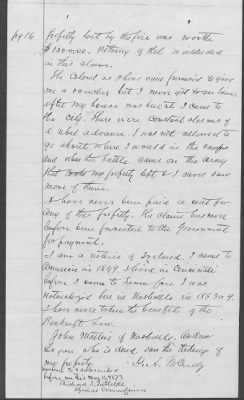 pg 16
property lost by the fire was worth
$10000.00. Nothing of that is included
in this claim.
The Colonel as I have said promised to give
me a voucher but I never got to see him
after my house was burnt I came to
the city. There were constant alarms of
a rebel advance. I was not allowed to
go about where I would in the camps
and when the battle came on the army
that took my property left & I never saw
more of them.
I have never been paid a cent for
any of this property. The claim has never
before been presented to the Government
for payment.
I am a native of Ireland. I came to
America in 1849. I lived in Cincinnati
before I came to Tennessee. I was
naturalized here in Nashville in 1853 or 4.
I have never taken the benefit of the
Bankrupt Law.
John Martin of Nashville. Andrew
who is dead saw the taking of
my property.
Sworn to & subscribed
before me this May 14, 1873
Special Commissioner